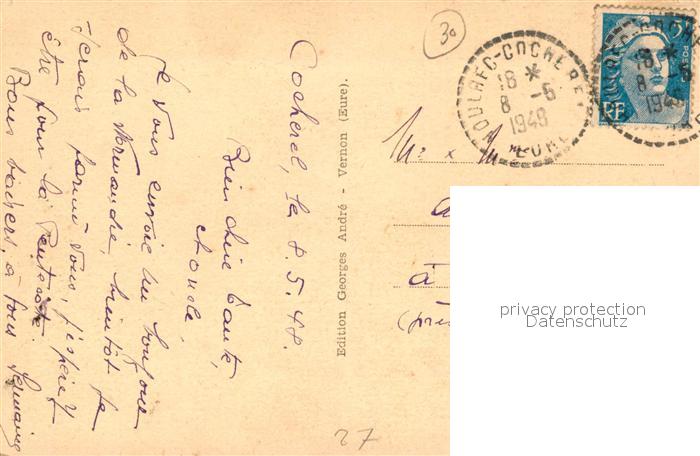 Cocherel, le 8.5.48.
Bien chère tante,
oncle,
Je vous envoie un bonjour
de la Normandie, bientôt je
serais parmi vous, j'espère y
être pour la Pentecôte.
Bons baisers à tous Germaine
Edition Georges André - Vernon (Eure).
30
HOULBEC-COCHEREL
18 *
8 -5
1948
EURE
RF
POSTES
18 *
8 -5
1948
Mr x M
à
(près
27
privacy protection
Datenschutz